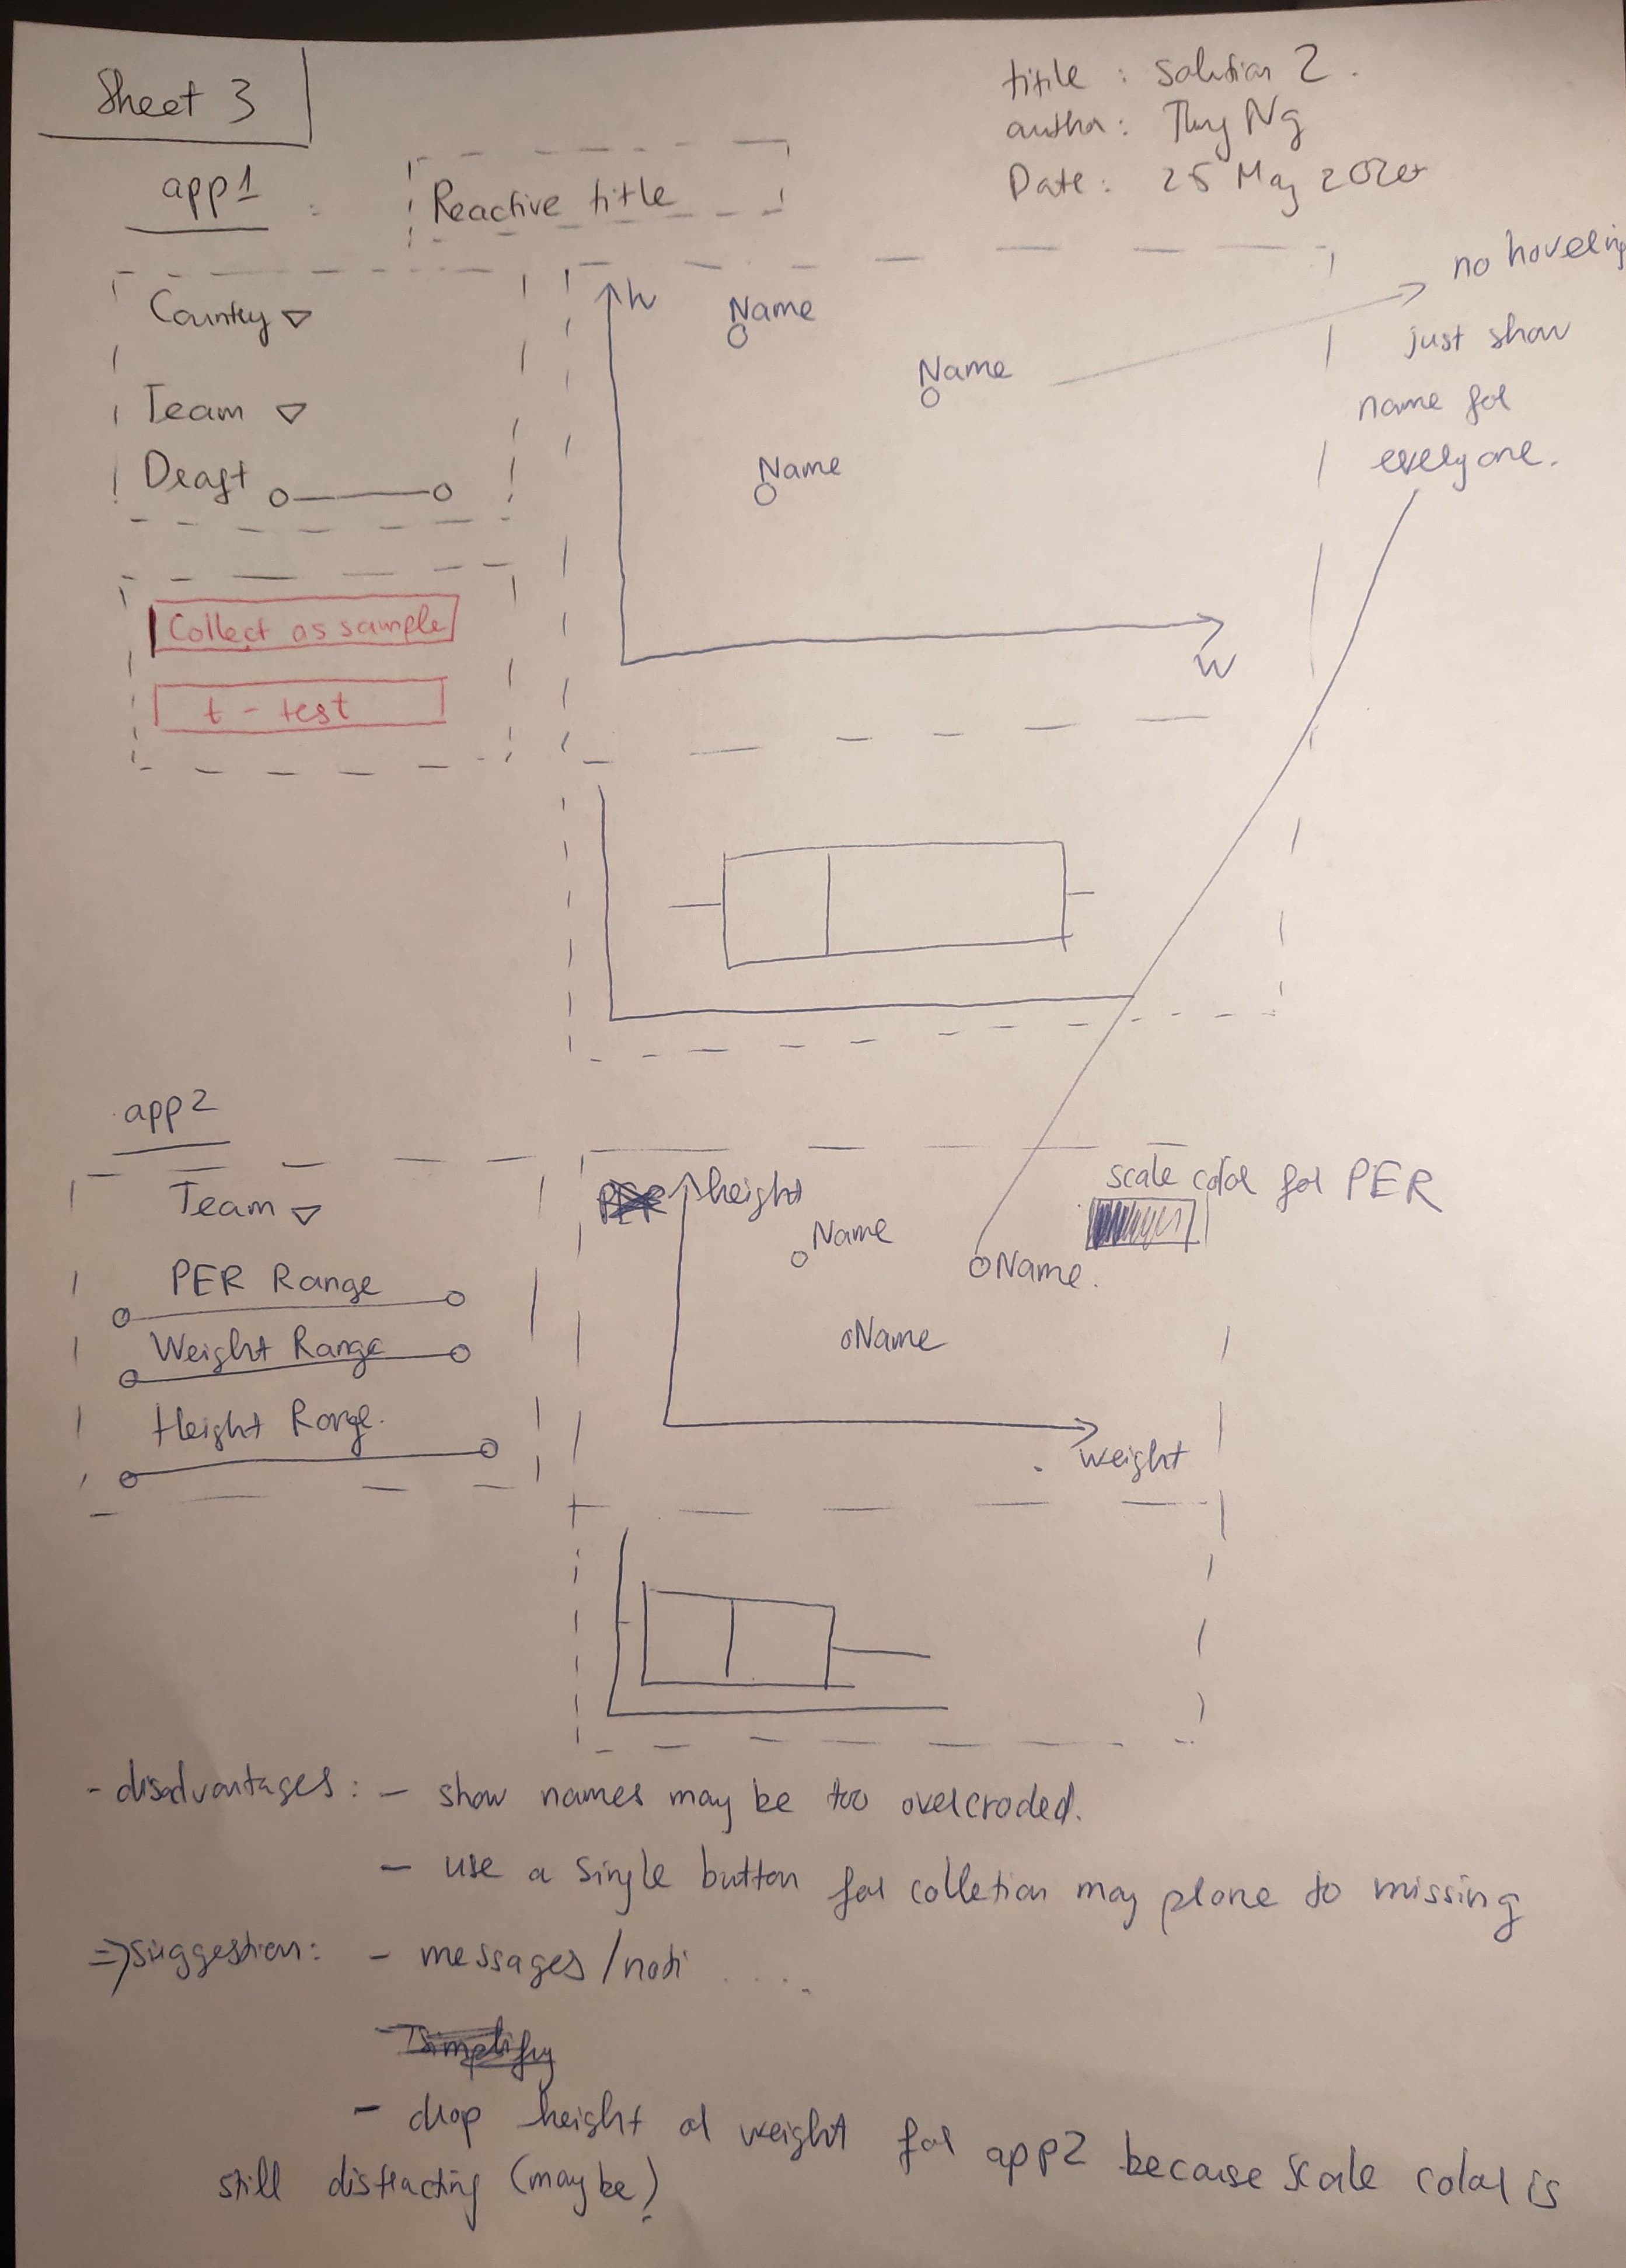 Sheet 3
titile : Solution 2.
author: Thuy Ng
Date: 25 May
app1 :
Reactive title
Country ▽
Team ▽
Draft
Collect as sample
t - test
h
Name
Name
Name
W
no hovering
just show
name for
everyone.
app2
Team ▽
PER Range
Weight Range
Height Range.
PER
height
Name
Name.
Name
weight
scale color for PER
- disadvantages: - show names may be too overcroded.
- use a single button for colletion may plone to missing
=> suggestion: - messages/noti ....
- Simplify
- drop height or weight for app2 because scale color is
still distracting (maybe)